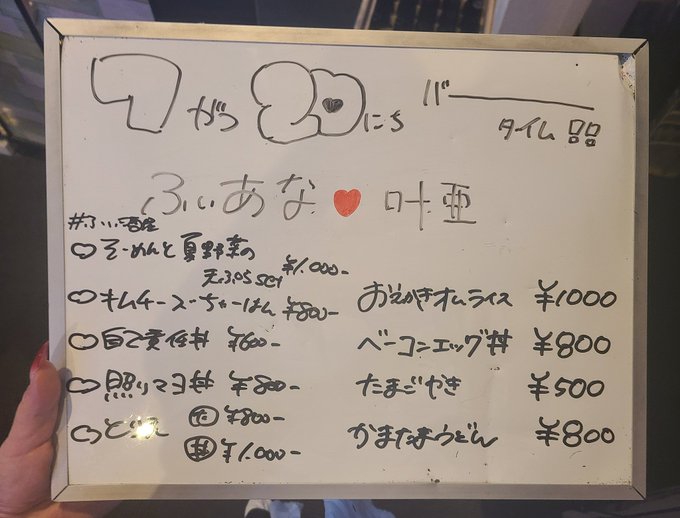 7がつ20にち バー
タイム
ふぃあな 叶亜
#ふぃ酒座
そーめんと夏野菜の
天ぷらset ¥1.000-
キムチースーちゃーはん ¥800-
自己責任丼 ¥600-
照りマヨ丼 ¥800-
¥800-
丼 ¥1.000-
おえかきオムライス ¥1000
ベーコンエッグ丼 ¥800
たまごやき ¥500
かまたまうどん ¥800